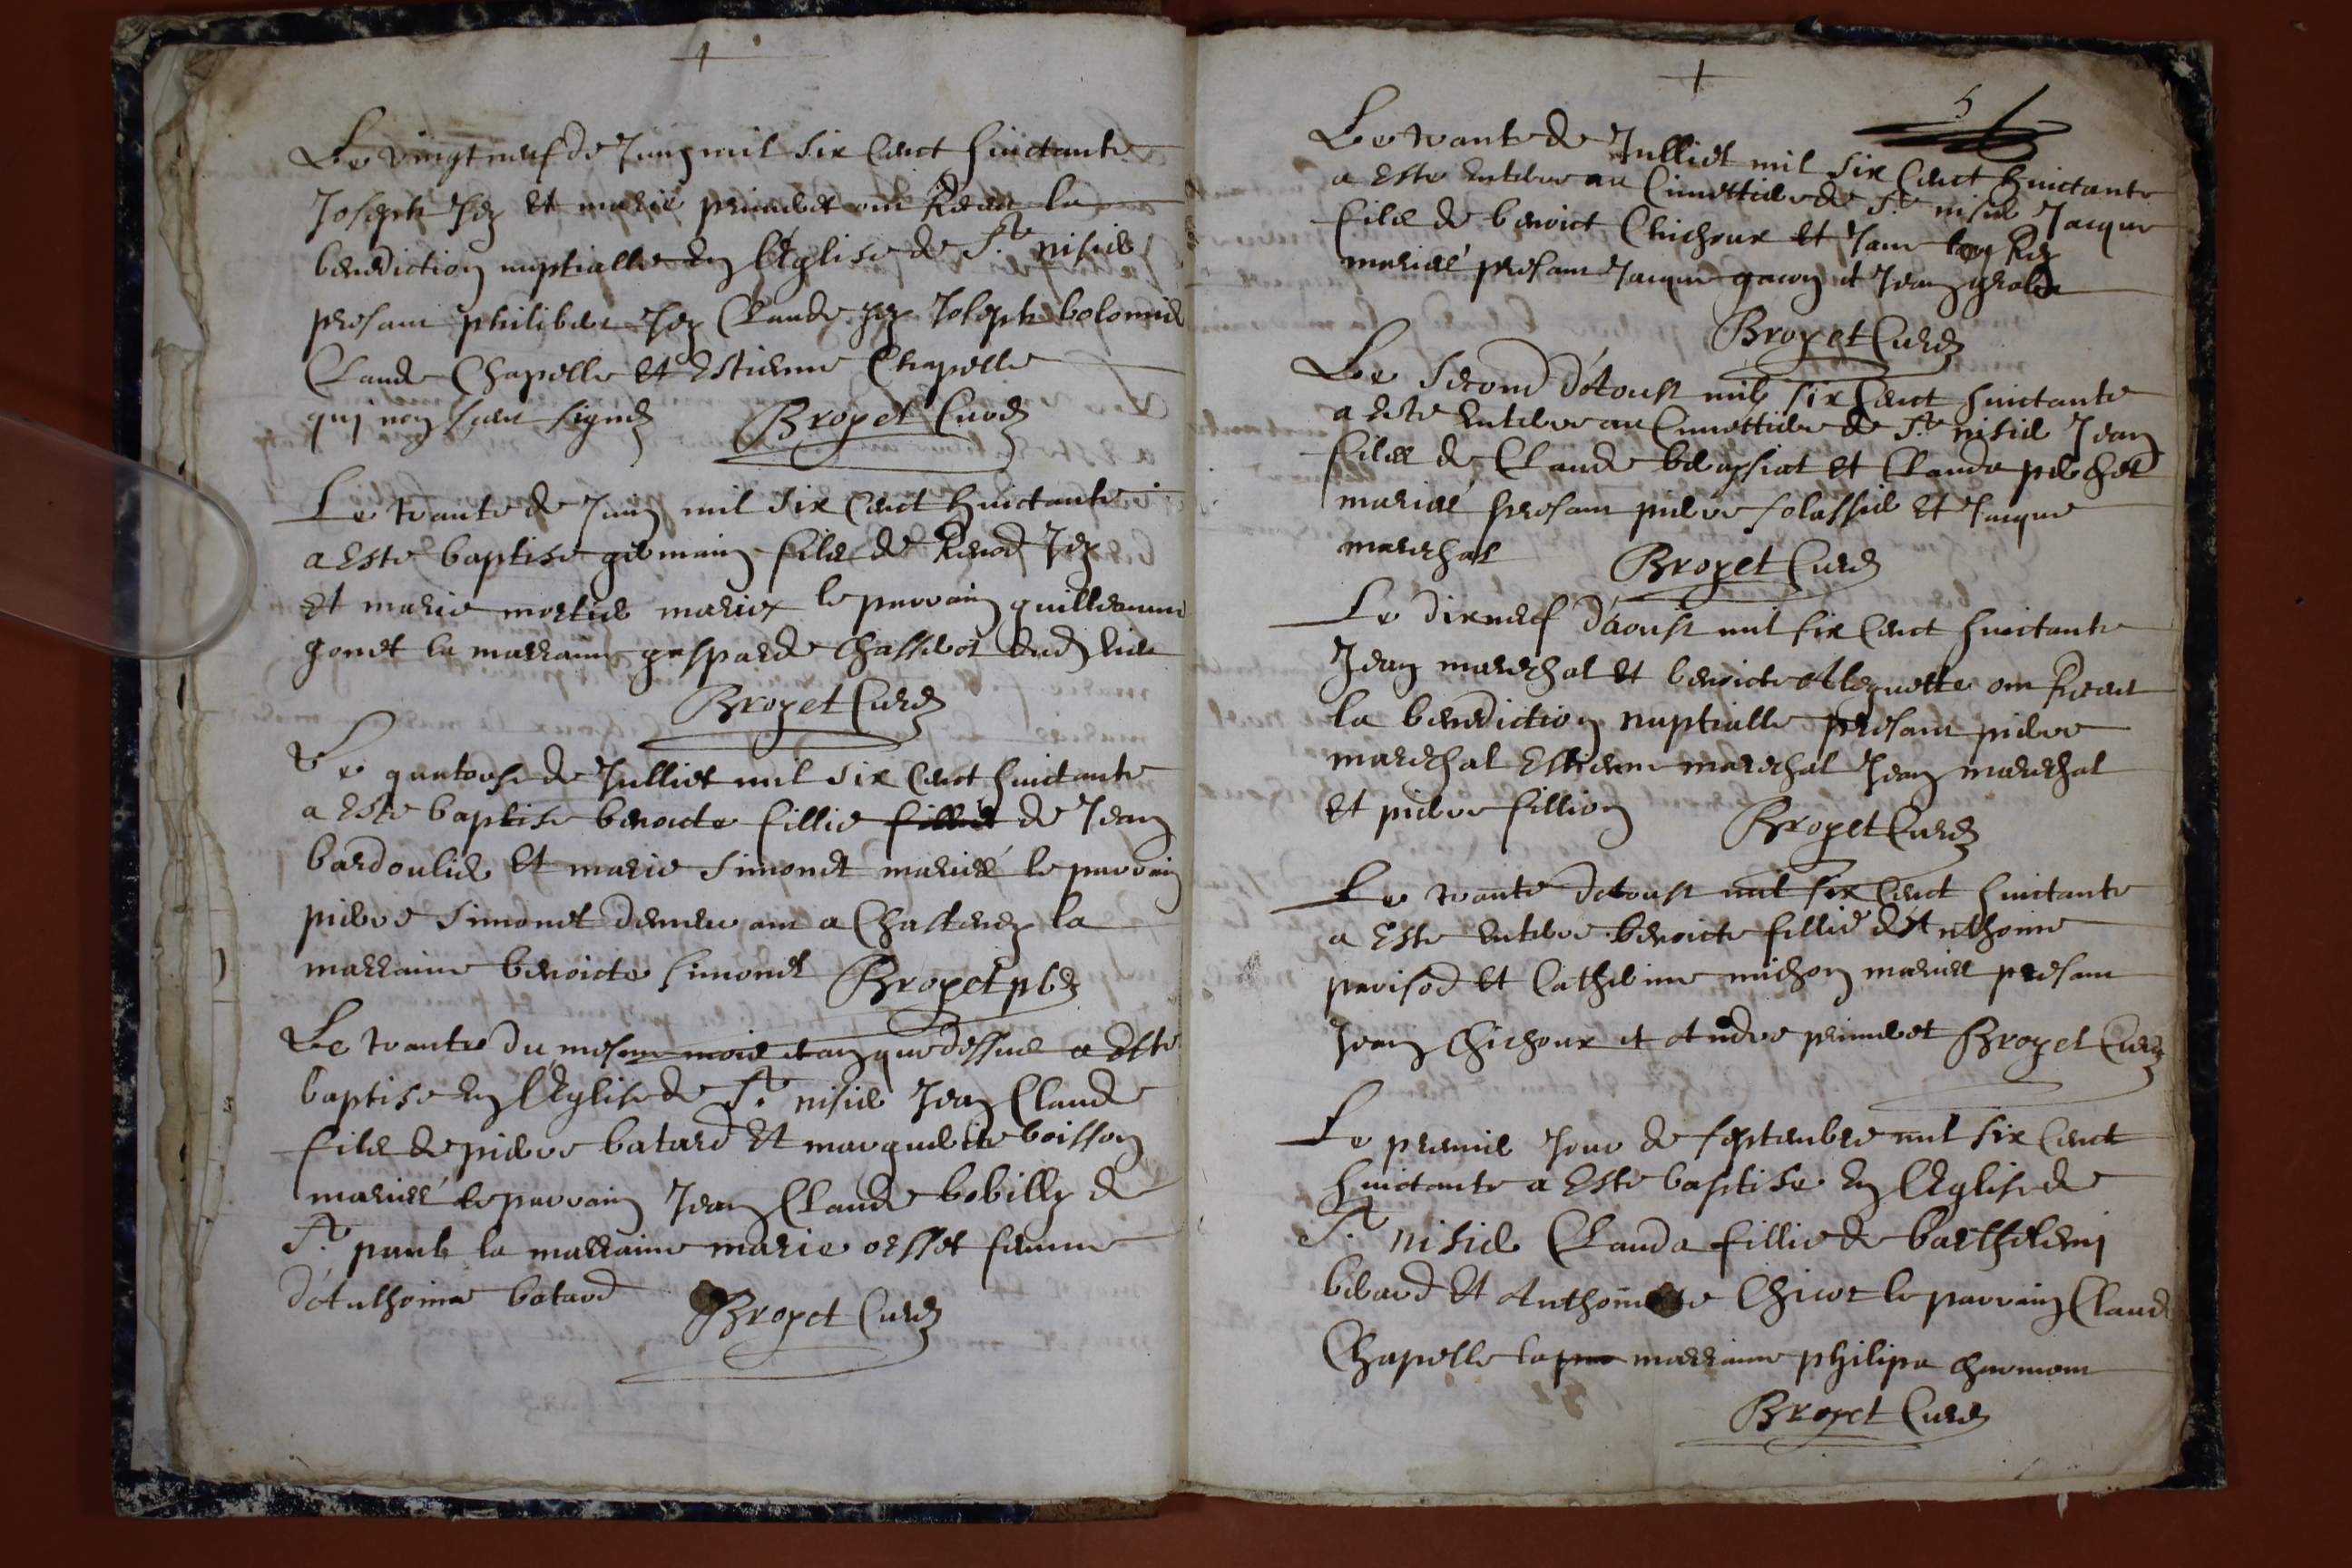 Le vingt neuf de Juing mil six cent huictante
Joseph Jey et marie priuilet ont Receu la
benediction nuptialle en l'Eglise de St nisier
presant philiber Jey Claude Jey Joseph bolomier
Claude Chapelle et Estienne Chapelle
qui non sceu signer Broyet Curé
Le trante de Juin mil six cent huictante
a Esté baptisé germain fils de Jey
et marie mortier mariés le parrain guilleaume
gonet la marraine gasparde Chasselot dud lieu
Broyet Curé
Le quatorse de Julliet mil six cent huictante
a Esté baptise benoicte fillie de Jean
bardoulier et marie simonet mariés le parrain
pierre simonet demeurant a Chastenay la
marraine benoicte simonet Broyet pbre
Le trante du mesme mois et an que dessus a Esté
baptisé en l'Eglise de St nisier Jean Claude
fils de pierre batard et marguerite boisson
mariés le parrain Jean Claude bobilly de
St paul la marraine marie orsset femme
d'Anthoine batard Broyet Curé
5
Le trante de Julliet mil six cent huictante
a Esté enterre au Cimettiere de St nisier Jacque
fils de benoict Chichoux et Jane Rey
mariés presant Jacque gacon et Jean
Broyet Curé
Le second d'Aoust mil six cent huictante
a esté enterre au Cimettiere de St nisier Jean
fils de Claude et Clauda perchet
mariés presant pierre solassier et Jacque
marechal Broyet Curé
Le dixneuf d'Aoust mil six cent huictante
Jean marechal et benoicte Aleynette ont Receu
la benediction nuptialle presant pierre
marechal Estienne marechal Jean marechal
et pierre fillion Broyet Curé
Le trante d'Aoust mil six cent huictante
a Esté enterre benoicte fillie d'Anthoine
parisod et Catherine michon mariés presant
Jean Chichoux et Andre priuilet Broyet Curé
Le premie Jour de septembre mil six cent
huictante a Esté baptise en l'Eglise de
St nisier Clauda fillie de barthelemi
berard et Anthoinette Chicot le parrain Claude
Chapelle la marraine philipa charmont
Broyet Curé